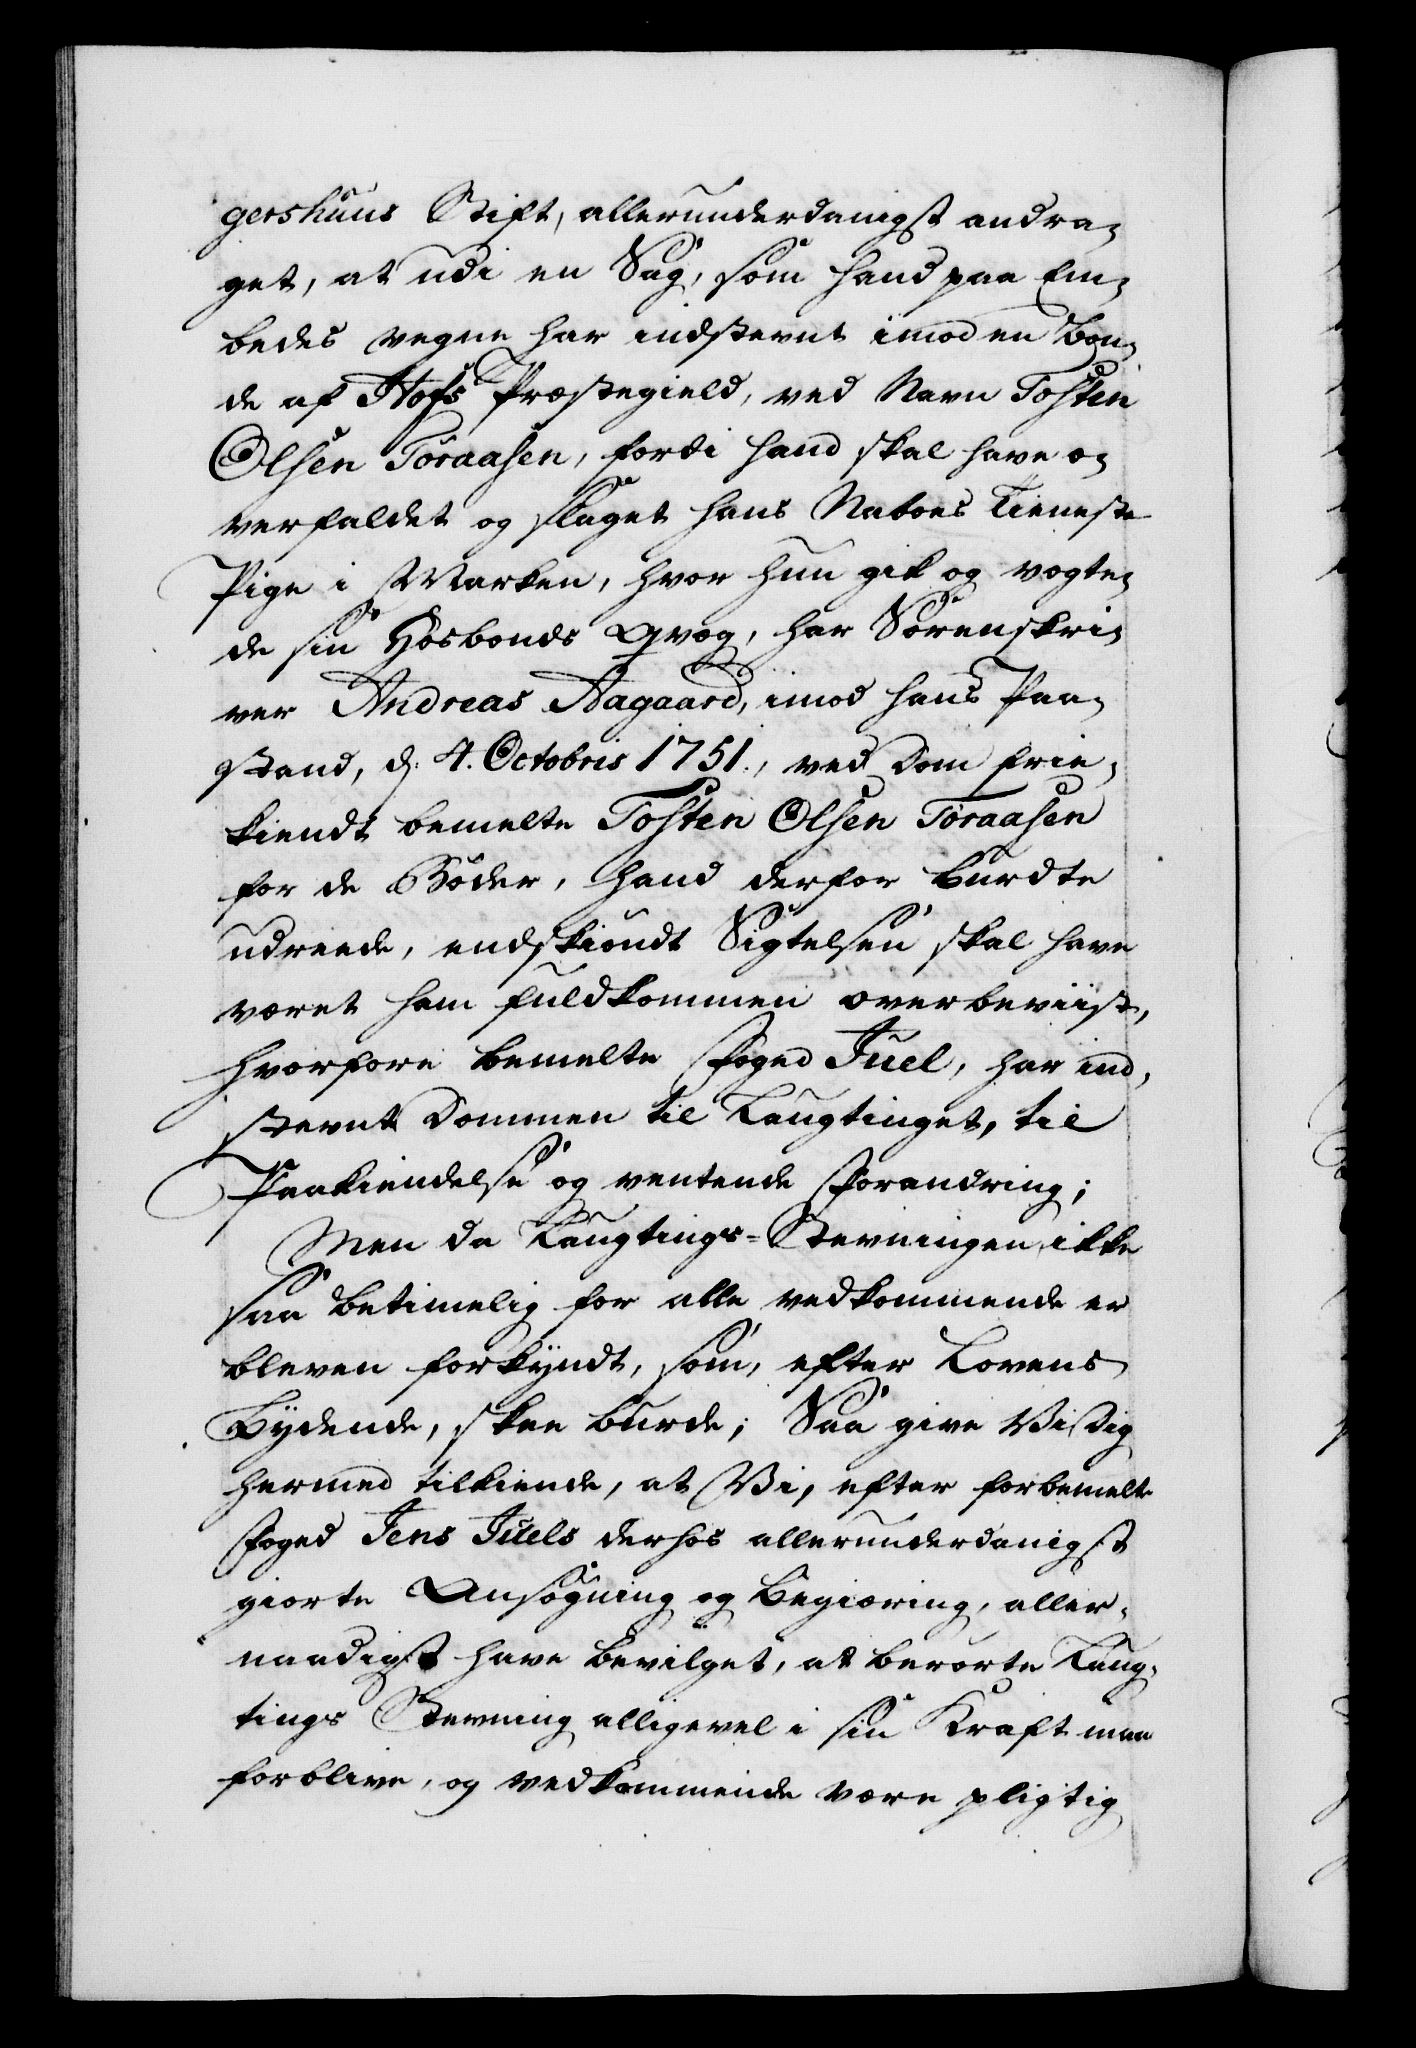 gershuus Stift, allerunderdanigst andra-
get, at udi en Sag, som hand paa Em-
bedes vegne har indstevnt imod en Bon-
de af Hofs Præstegield, ved Navn Tosten
Olsen Toraasen, fordi hand skal have o-
verfaldet og slaget hans Naboes Tieneste
Pige i Marken, hvor hun gik og vogte-
de sin Hosbonds Qvæg, har Sorenskri-
ver Andreas Aagaard, imod hans Paa-
stand, d. 4. Octobris 1751., ved Dom frie-
kiendt bemelte Tosten Olsen Toraasen
for de Bøder, hand derfor burdte
udreede, endskiøndt Sigtelsen skal have
været ham fuldkommen overbeviist,
hvorfore bemelte Foged Juel, har ind-
stevnt Dommen til Laugtinget, til
Paakiendelse og ventende Forandring;
Men da Laugtings-Stevningen ikke
saa betimelig for alle vedkommende er
bleven forkyndt, som, efter Lovens
Bydende, skee burde; Saa give Vi Dig
hermed tilkiende, at Vi, efter forbemelte
Foged Jens Juels derhos allerunderdanigst
giorte Ansøgning og Begiæring, aller-
naadigst have bevilget, at berørte Laug-
tings Stevning alligevel i sin Kraft maa
forblive, og vedkommende være pligtig